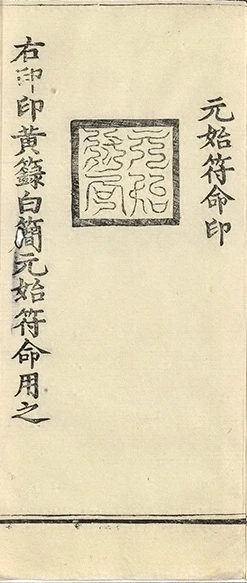 元始符命印
元始符命
右印印黃籙白簡元始符命用之